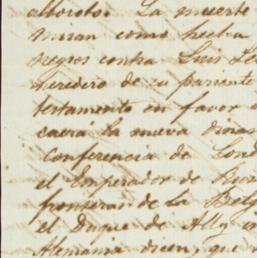 alboroto. La muerte
miran como hecha
negros contra Luis Fe
heredero de su pariente
testamento en favor
caerá la nueva dinas
conferencia de Lond
el Emperador de
fronteras de la Belg
el Duque de
Alemania dicen, que